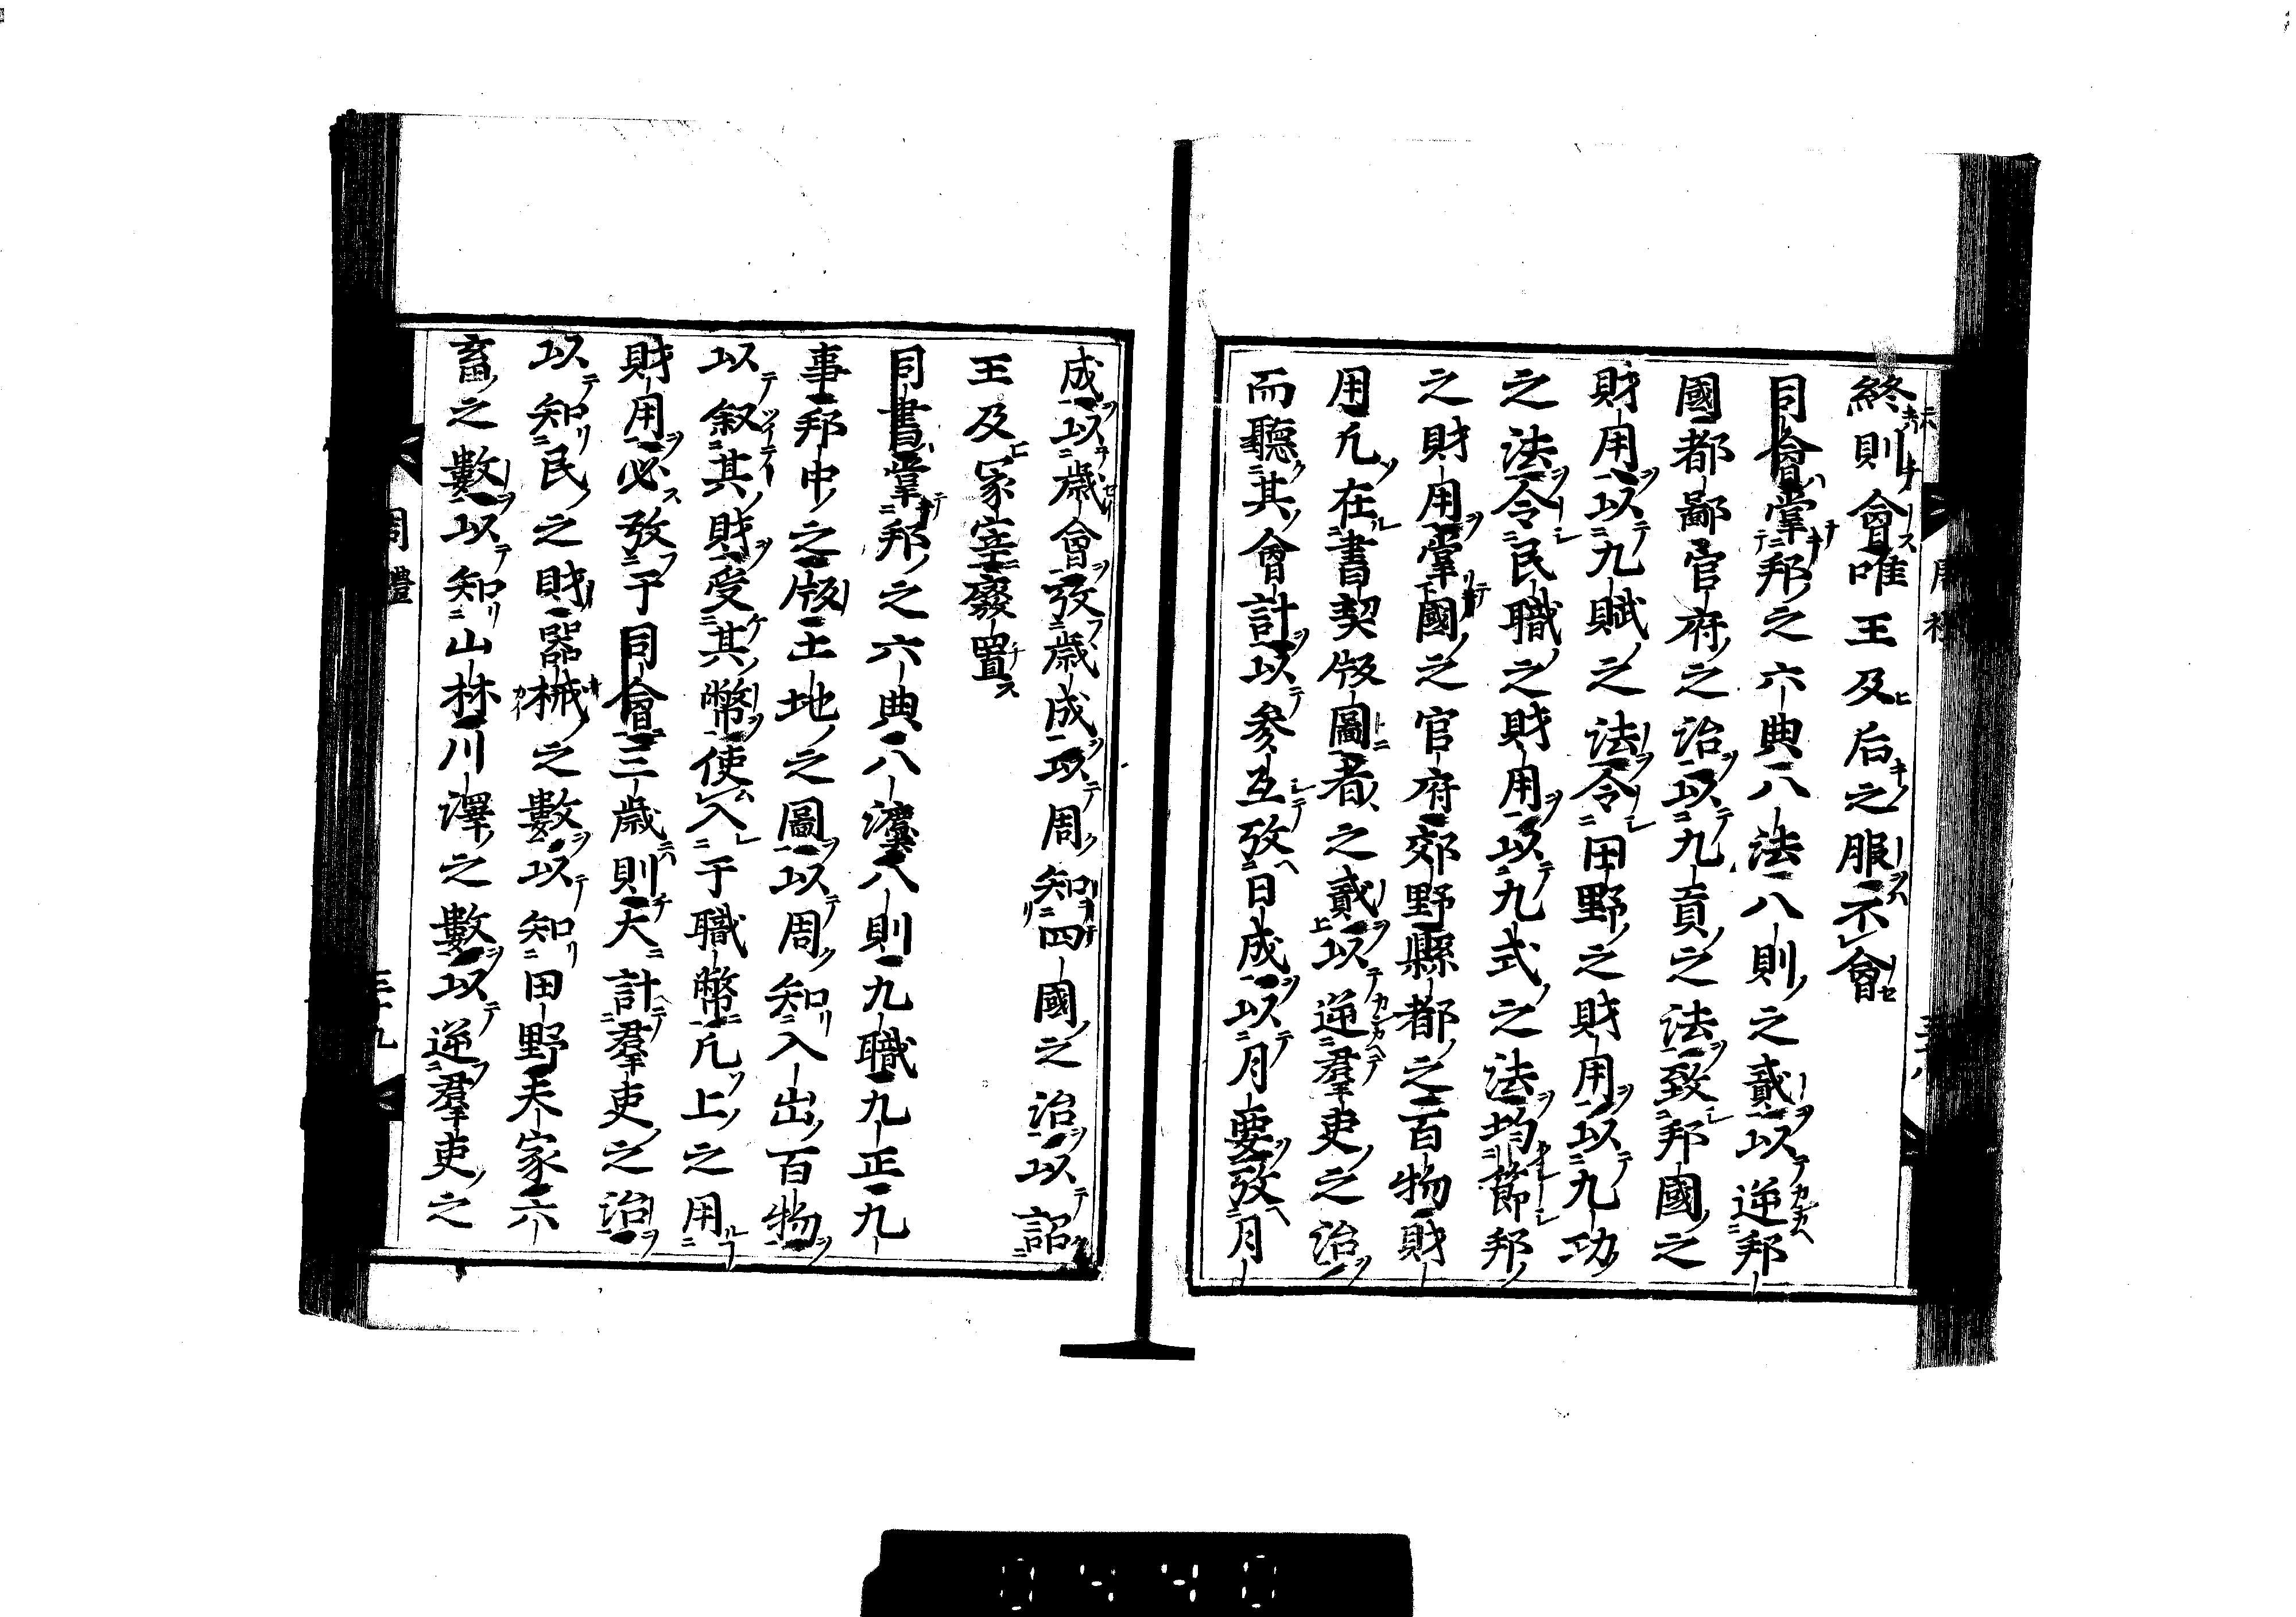 終則會唯王及后之服不會
司會掌邦之六典八法八則之貳以逆邦
國都鄙官府之治以九貢之法致邦國之
財用以九賦之法令田野之財用以九功
之法令民職之財用以九式之法均節邦
之財用掌國之官府郊野縣都之百物財
用凡在書契版圖者之貳以逆羣吏之治
而聽其會計以參互攷日成以月要攷月
成以歲會攷歲成以周知四國之治以詔
王及冢宰廢置
司書掌邦之六典八灋八則九職九正九
事邦中之版土地之圖以周知入出百物
以叙其財受其幣使入于職幣凡上之用
財用必攷于司會三歲則大計羣吏之治
以知民之財器械之數以知田野夫家六
畜之數以知山林川澤之數以逆羣吏之
周禮
0440